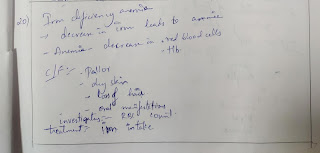 20) Iron deficiency anemia
→ decrease in iron leads to anemia
→ Anemia - decrease in → red blood cells
→ Hb
C/F:- - Pallor
- dry skin
→ loss of hair
→ oral manifestations
investigation:- RBC count.
treatment:- iron intake